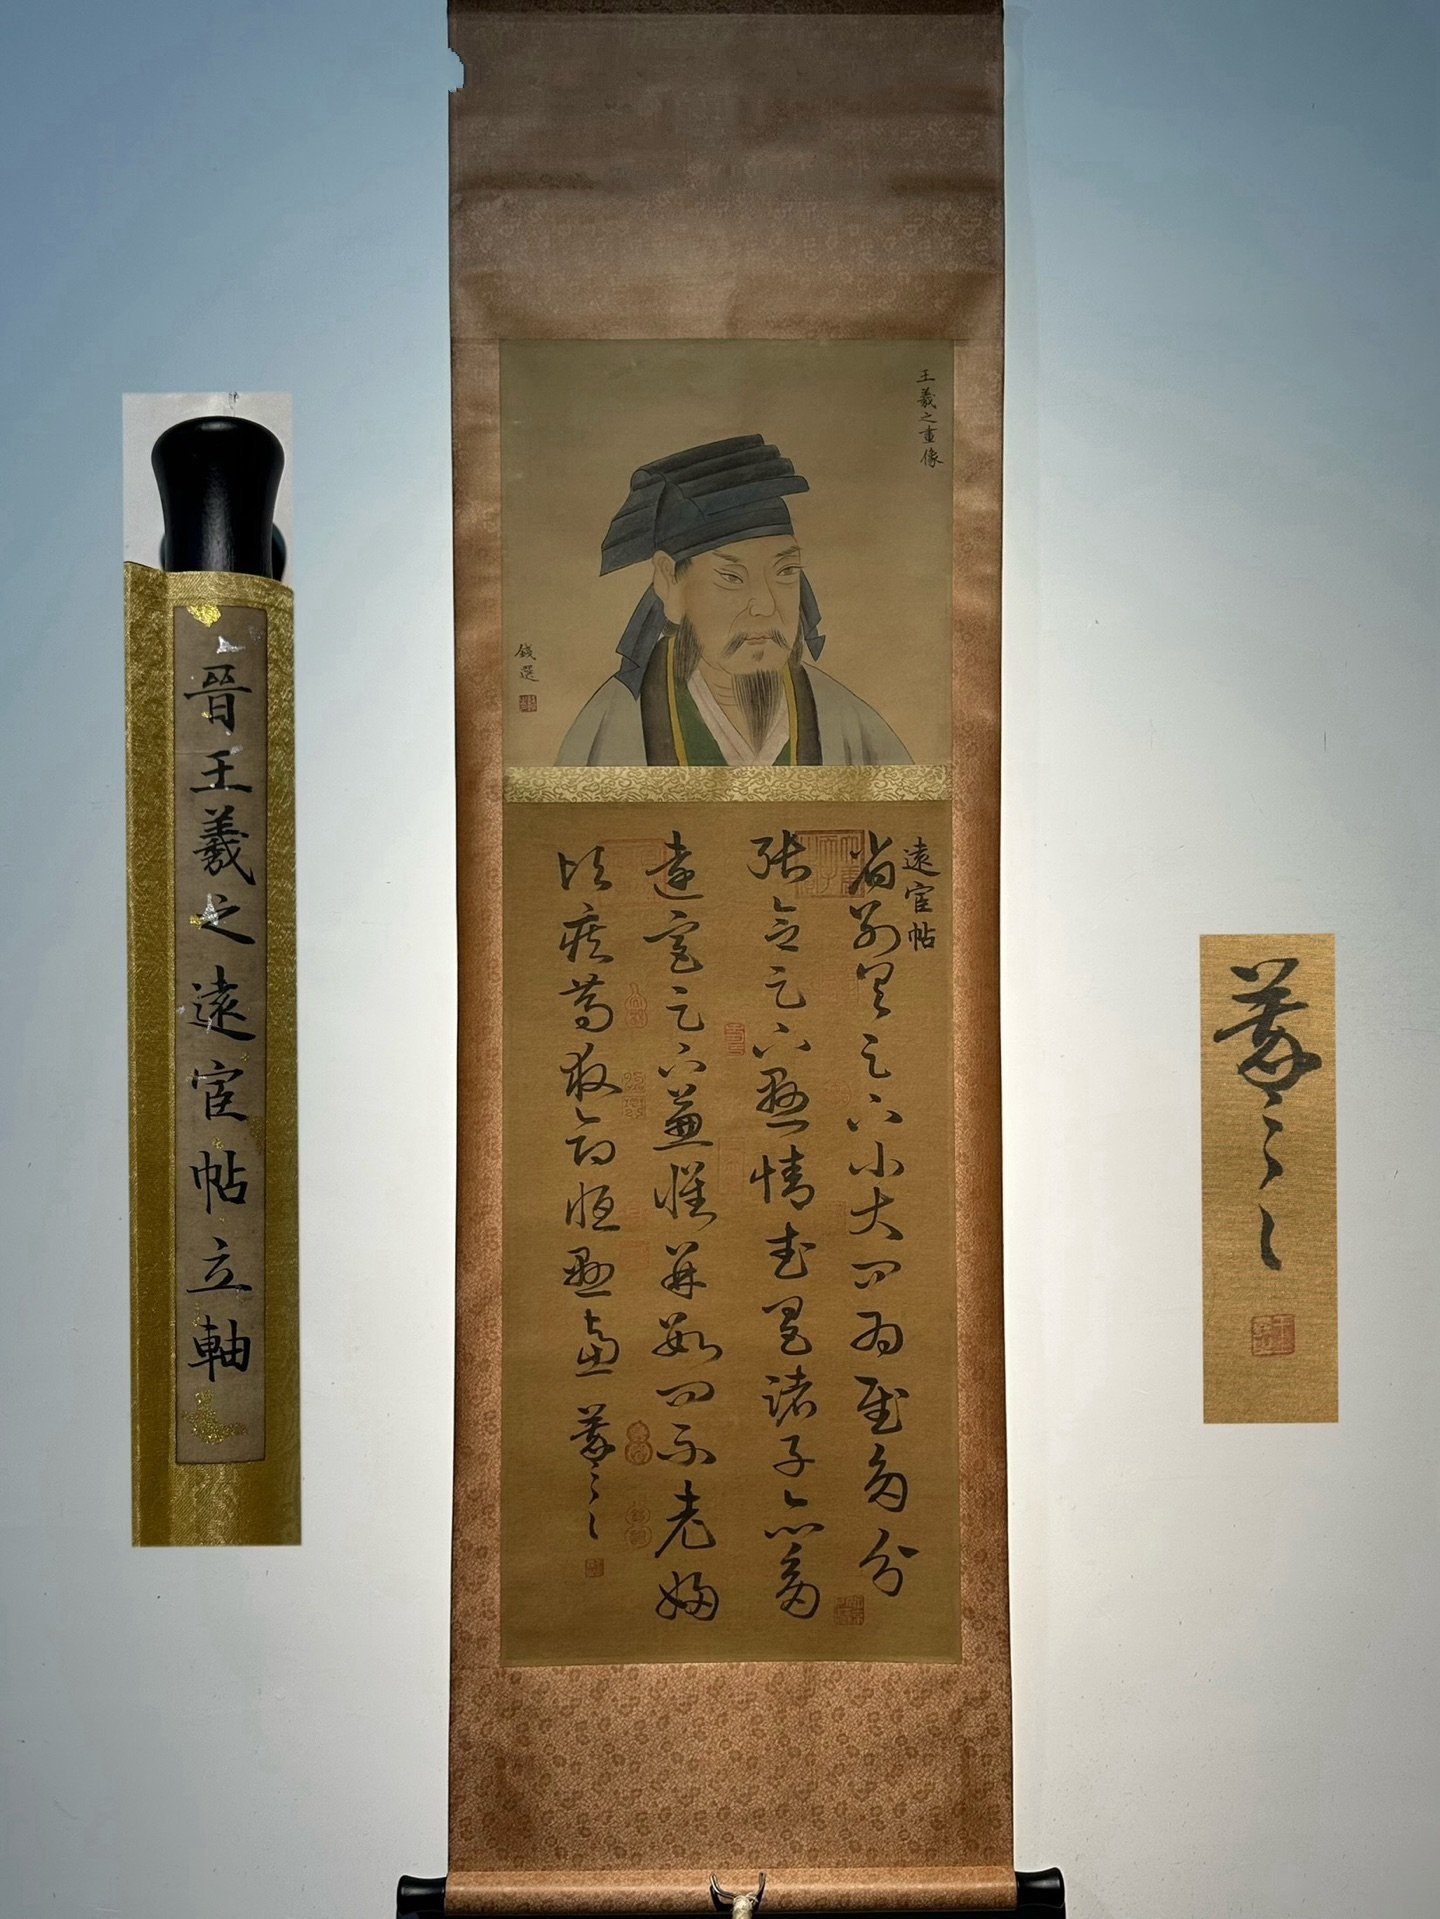 晉王羲之遠宦帖立軸
王羲之畫像
錢選
遠宦帖
省別具足下小大問為慰多分
張念足下懸情武昌諸子亦多
遠宦足下兼懷並數問不老婦
頃疾篤救命恒憂慮羲之
羲之